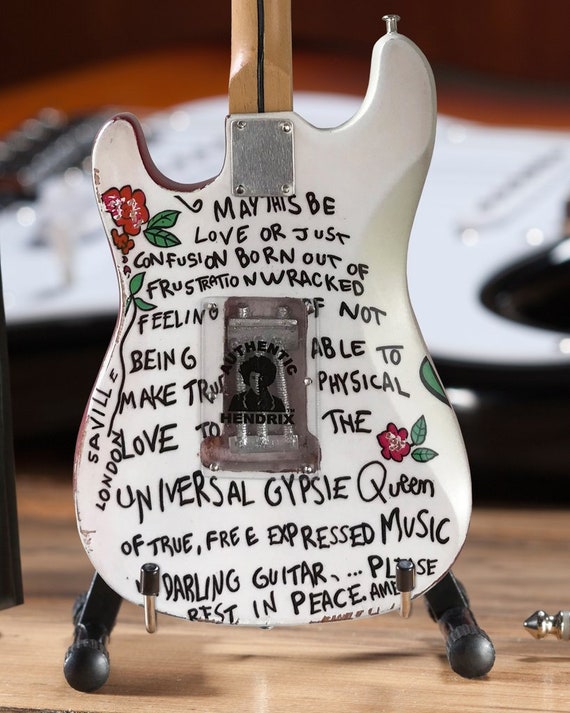 MAY THIS BE
LOVE OR JUST
CONFUSION BORN OUT OF
FRUSTRATION WRACKED
FEELING OF NOT
BEING ABLE TO
MAKE TRUE PHYSICAL
LOVE TO THE
UNIVERSAL GYPSIE Queen
OF TRUE, FREE EXPRESSED MUSIC
DARLING GUITAR, ... PLEASE
REST IN PEACE. AME
SAVILLE
LONDON
AUTHENTIC
HENDRIX